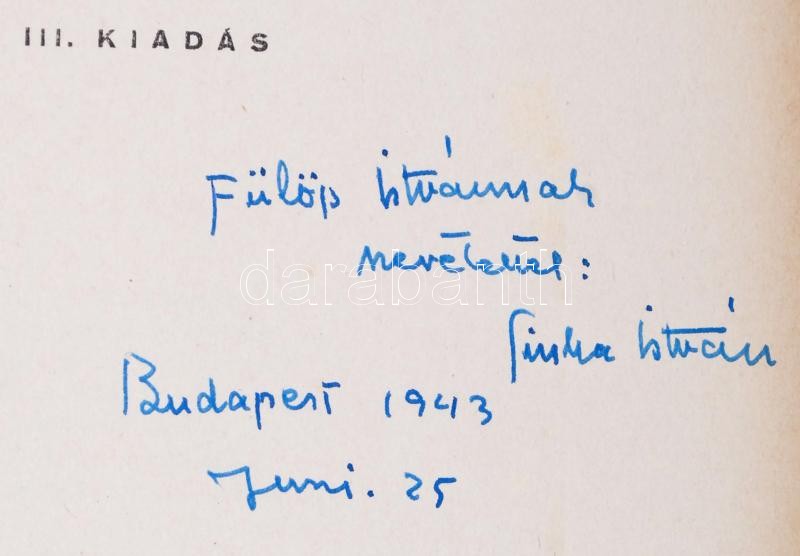 III. KIADÁS
Fülöp Istvánnak
darabanth
Sinka István
Budapest 1943
Juni. 25